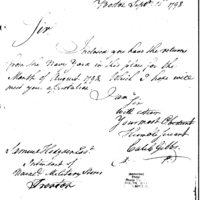 Boston Sept. 15 1798
Sir
Inclosed you have the returns
from the Navy Yard in this place for the
Month of August 1798. Which I hope will
meet your approbation
I am
Sir
with esteem
Your most Obedient
Humble Servant
Caleb Gibbs
Samuel Hodgdon Esqr.
Intendant of
Naval & Military Stores